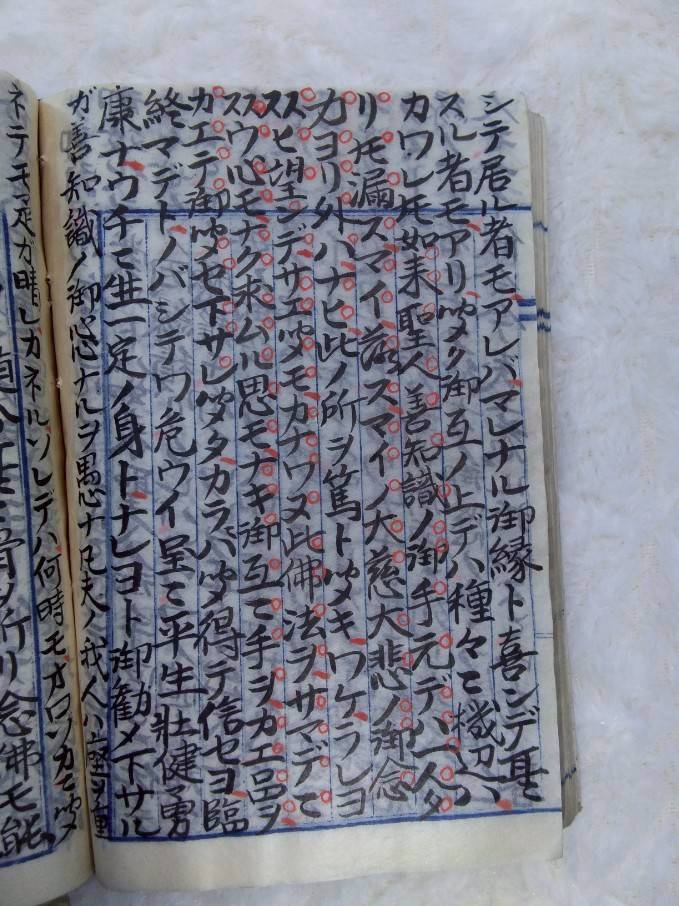 シテ居ル者モアレバマレナル御縁ト喜ンデ耳ニ
スル者モアリ吹ク御互ノ上デハ種々ニ機辺ハ
カワレ𪜈如来聖人善知識ノ御手元デハ一人タ
リ𪜈漏スマイ落スマイノ大慈大悲ノ御念
力ヨリ外ハナヒ此ノ所ヲ篤ト聞キワケラレヨ
スヒ望ンデサエ聞モカナワヌ此佛法ヲサマデニ
スウ心モナク求ムル思モナキ御互ニ手ヲカエ品ヲ
カエテ御聞セ下サレ聞タカラバ聞得テ信セヨ臨
終マデトノバシテワ危ウイ呈ニ平生壮健勇
康ナウチニ往生一定ノ身トナレヨト御勧メ下サル
ガ善知識ノ御心ナルヲ愚ナ凡夫ノ我人ハ座ヲ重
ネテモ疑ガ晴レカネルソレデハ何時モオロソカニ聞
行リ念佛モ能